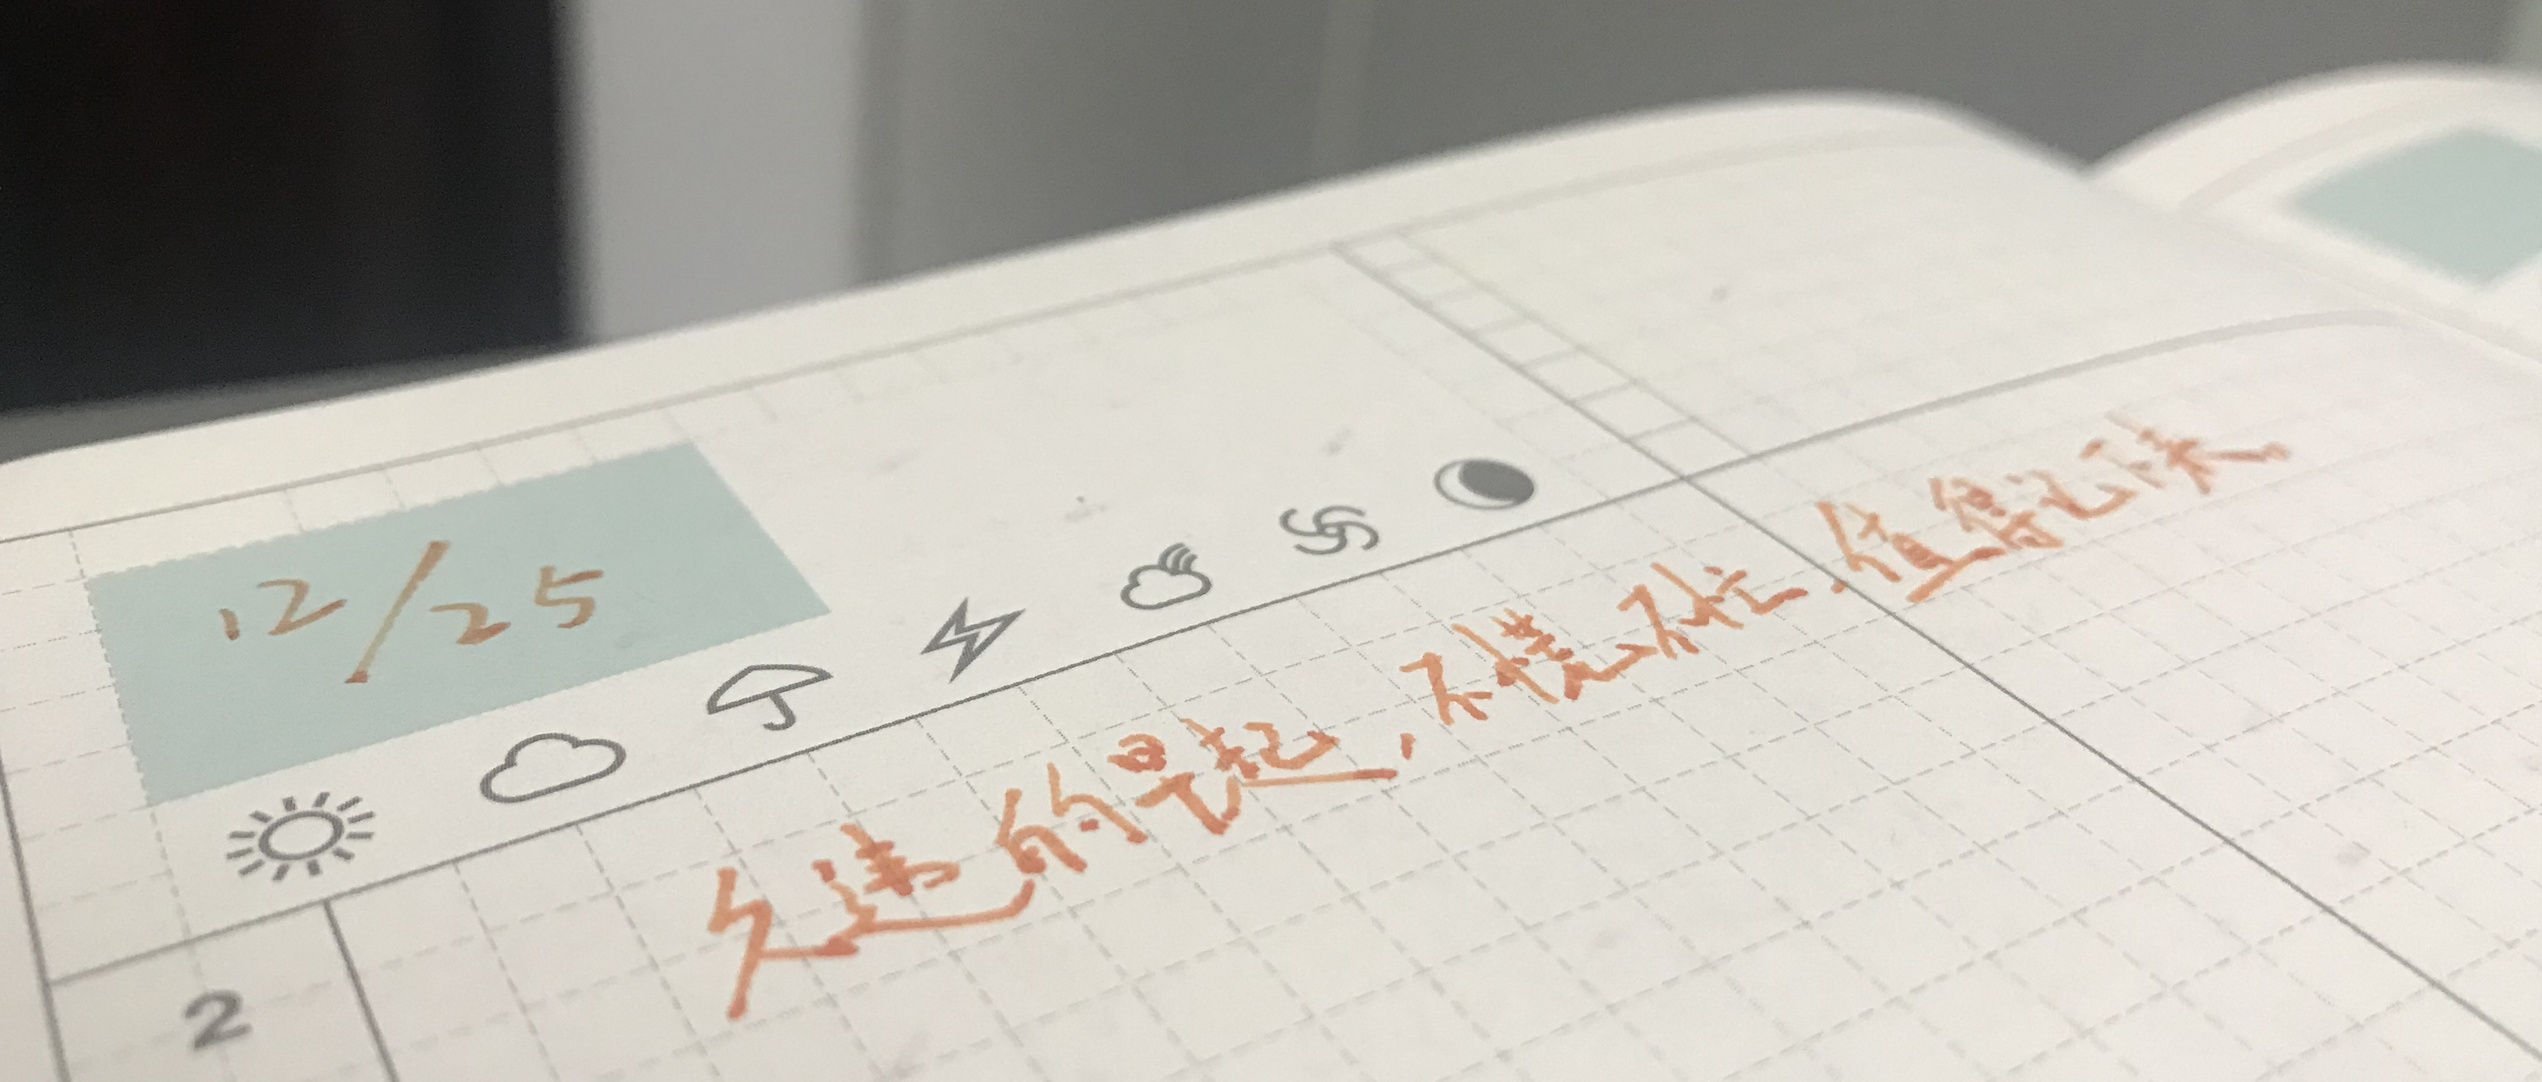 12/25
久违的早起，不慌不忙，值得记录。
2